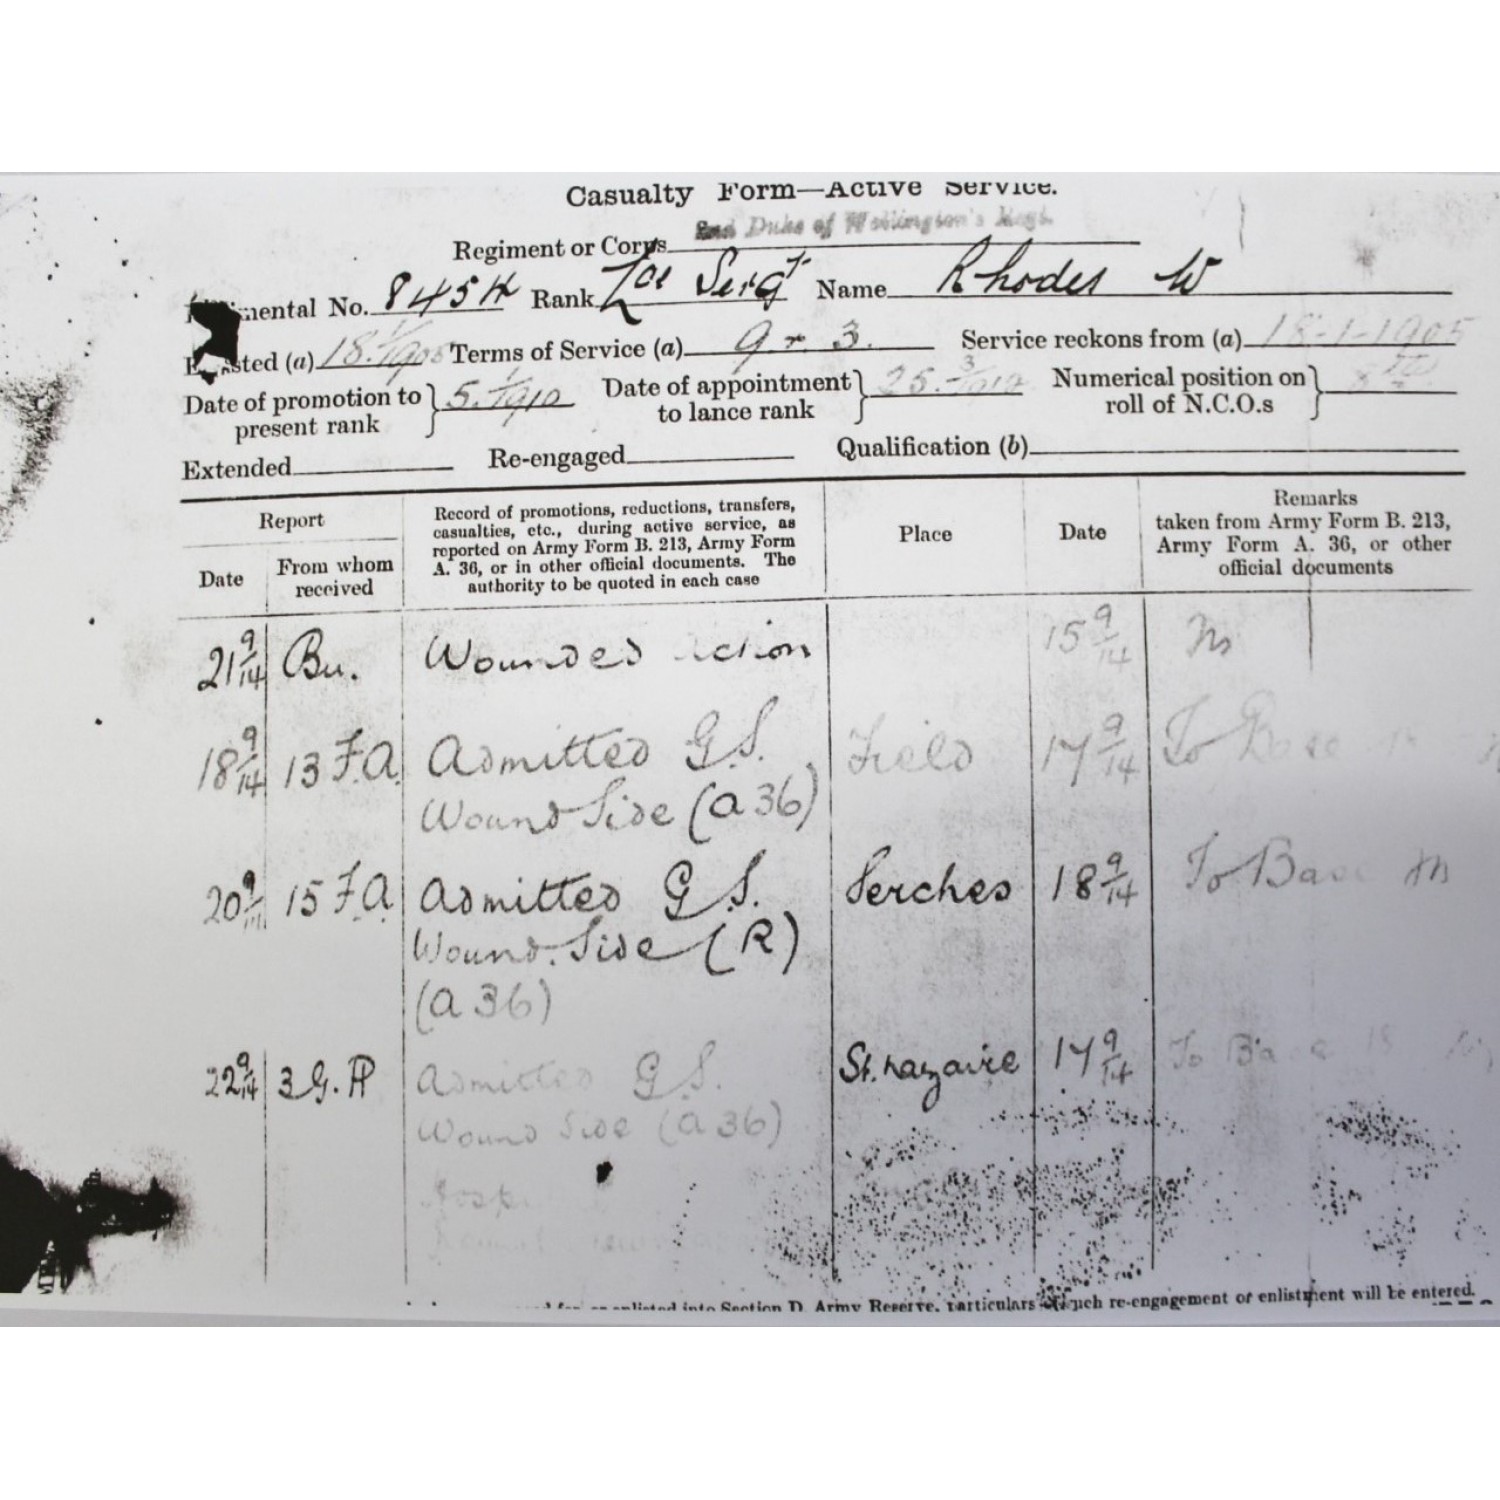 Casualty Form—Active Service.
2nd Duke of Wellington's Regt.
Regiment or Corps
mental No. 8454 Rank Lce Sergt Name Rhodes W
sted (a) 18.1/1905 Terms of Service (a) 9 + 3. Service reckons from (a) 18-1-1905
Date of promotion to present rank 5. 1/1910 Date of appointment to lance rank 25. 3 Numerical position on roll of N.C.O.s
Extended Re-engaged Qualification (b)
Report
Date
From whom received
Record of promotions, reductions, transfers,
casualties, etc., during active service, as
reported on Army Form B. 213, Army Form
A. 36, or in other official documents. The
authority to be quoted in each case
Place
Date
Remarks
taken from Army Form B. 213,
Army Form A. 36, or other
official documents
21 9/14 Bu. Wounded action 15 9/14 m
18 9/14 13 F.A. Admitted G.S. Field 17 9/14 To Base
Wound Side (A 36)
20 9/14 15 F.A. Admitted G.S. Serches 18 9/14 To Base m
Wound. Side (R)
(A 36)
22 9/14 3 G.H Admitted G.S. St. Nazaire 17 9/14 To Base 18
Wound Side (A 36)
Hosp.
enlisted into Section D. Army Reserve, particulars of such re-engagement or enlistment will be entered.